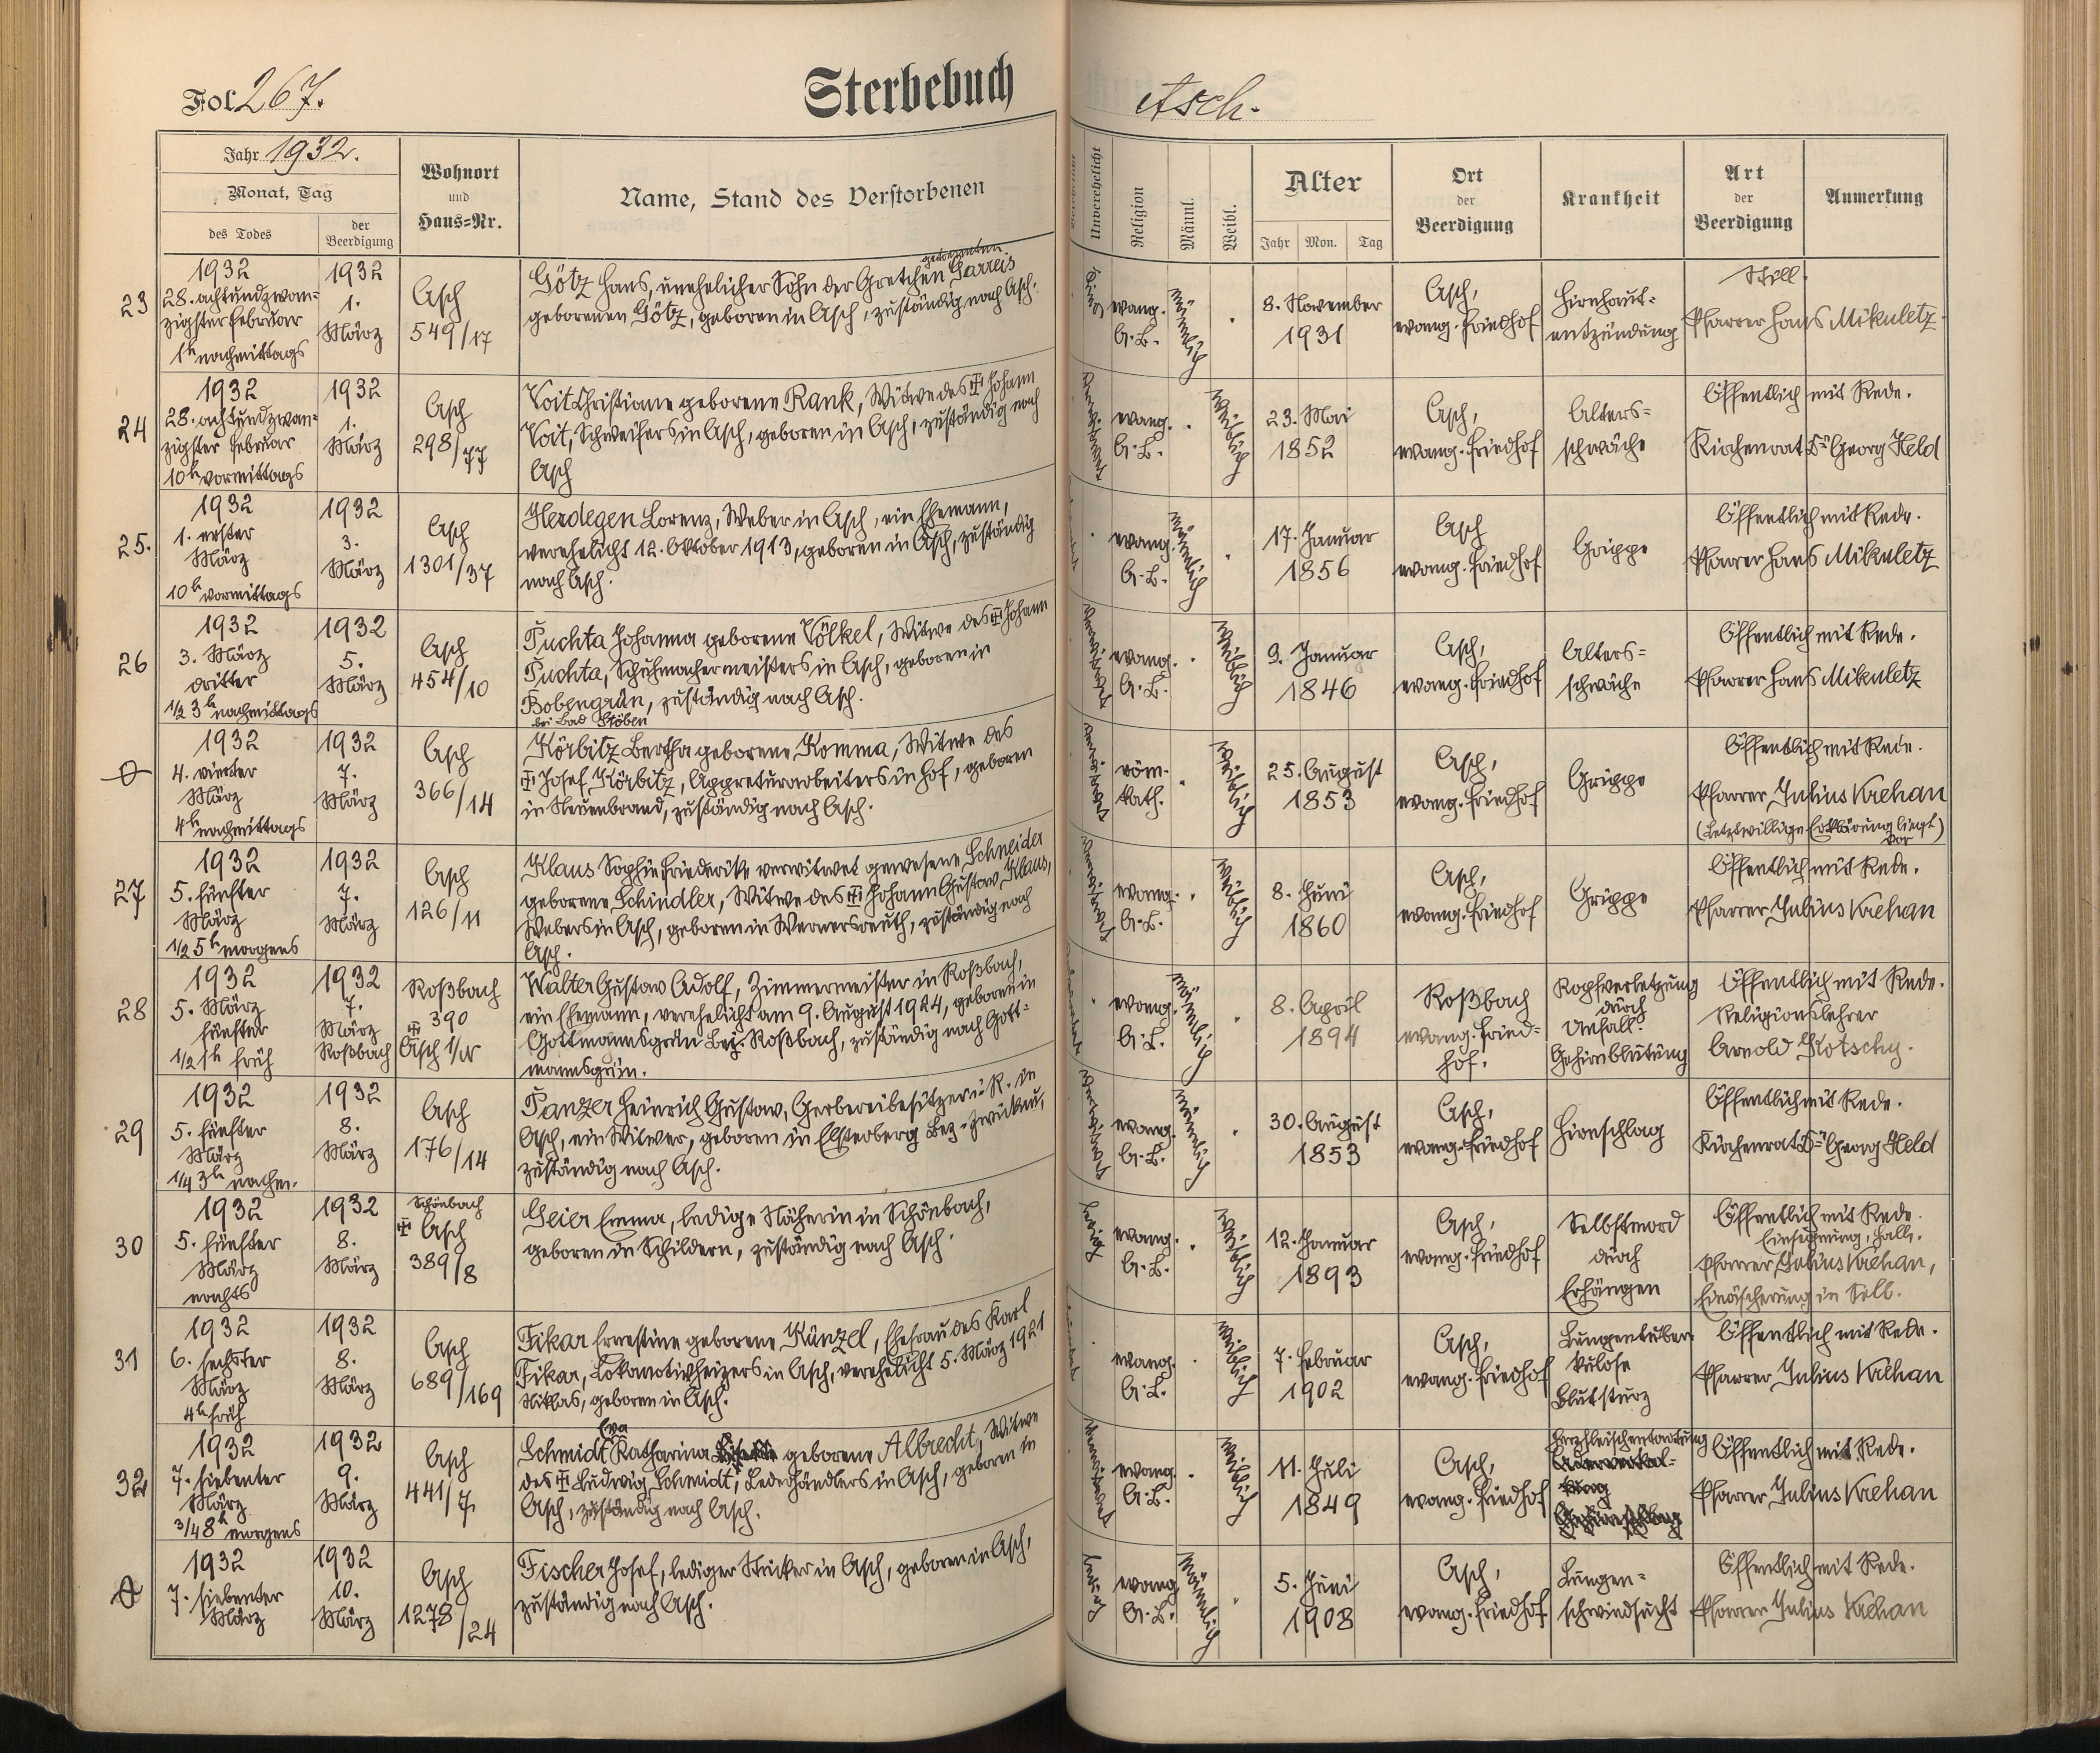 Fol. 267.
Sterbebuch
Asch.
Jahr 1932.
Monat, Tag
des Todes
der Beerdigung
Wohnort
und
Haus=Nr.
Name, Stand des Verstorbenen
Unverehelicht
Religion
Männl.
Weibl.
Alter
Jahr Mon. Tag
Ort
der
Beerdigung
Krankheit
Art
der
Beerdigung
Anmerkung
23
1932
28. achtundzwan=
zigster Februar
1h nachmittags
1932
1.
März
Asch
549/17
Götz Hans, unehelicher Sohn der Gretchen Harreis
geborenen Götz, geboren in Asch, zuständig nach Asch.
ledig
evang.
A.B.
männlich
8. November
1931
Asch,
evang. Friedhof
Hirnhaut=
entzündung
Still.
Pfarrer Hans Mikuletz.
24
1932
28. achtundzwan=
zigster Februar
10h vormittags
1932
1.
März
Asch
298/77
Voit Christiane geborene Rank, Witwe des ☩ Johann
Voit, Schweifers in Asch, geboren in Asch, zuständig nach
Asch
verwitwet
evang.
A.B.
weiblich
23. Mai
1852
Asch,
evang. Friedhof
Alters=
schwäche
Öffentlich mit Rede.
Kirchenrat Dr Georg Held
25.
1932
1. erster
März
10h vormittags
1932
3.
März
Asch
1301/37
Herdegen Lorenz, Weber in Asch, ein Ehemann,
verehelicht 12. Oktober 1913, geboren in Asch, zuständig
nach Asch.
evang.
A.B.
männlich
17. Januar
1856
Asch
evang. Friedhof
Grippe
Öffentlich mit Rede.
Pfarrer Hans Mikuletz
26
1932
3. März
dritter
1/2 3h nachmittags
1932
5.
März
Asch
454/10
Puchta Johanna geborene Völkel, Witwe des ☩ Johann
Puchta, Schuhmachermeisters in Asch, geboren in
Bobengrün, zuständig nach Asch.
bei Bad Stöben
verwitwet
evang.
A.B.
weiblich
9. Januar
1846
Asch,
evang. Friedhof
Alters=
schwäche
Öffentlich mit Rede.
Pfarrer Hans Mikuletz
1932
4. vierter
März
4h nachmittags
1932
7.
März
Asch
366/14
Körbitz Bertha geborene Komma, Witwe des
☩ Josef Körbitz, Appreturarbeiters in Hof, geboren
in Neuenbrand, zuständig nach Asch.
verwitwet
röm.
kath.
weiblich
25. August
1853
Asch,
evang. Friedhof
Grippe
Öffentlich mit Rede.
Pfarrer Julius Krehan
(Letztwillige Erklärung liegt
vor)
27
1932
5. fünfter
März
1/2 5h morgens
1932
7.
März
Asch
126/11
Klaus Sophie Friederike verwitwet gewesene Schneider
geborene Schindler, Witwe des ☩ Johann Gustav Klaus,
Webers in Asch, geboren in Wernersreuth, zuständig nach
Asch.
verwitwet
evang.
A.B.
weiblich
8. Juni
1860
Asch,
evang. Friedhof
Grippe
Öffentlich mit Rede.
Pfarrer Julius Krehan
28
1932
5. März
fünfter
1/2 1h früh
1932
7.
März
Roßbach
Roßbach
390
☩ Asch
Walter Gustav Adolf, Zimmermeister in Roßbach,
ein Ehemann, verehelicht am 9. August 1924, geboren in
Gottmannsgrün Bez. Roßbach, zuständig nach Gott=
mannsgrün.
evang.
A.B.
männlich
8. April
1894
Roßbach
evang. Fried=
hof.
Kopfverletzung
durch
Unfall.
Gehirnblutung
Öffentlich mit Rede.
Religionslehrer
Arnold Hotschy.
29
1932
5. fünfter
März
1/4 3h nachm.
1932
8.
März
Asch
176/14
Panzer Heinrich Gustav, Gerbereibesitzer i. R. in
Asch, ein Witwer, geboren in Elsterberg Bez. Zwickau,
zuständig nach Asch.
verwitwet
evang.
A.B.
männlich
30. August
1853
Asch,
evang. Friedhof
Hirnschlag
Öffentlich mit Rede.
Kirchenrat Dr Georg Held
30
1932
5. fünfter
März
nachts
1932
8.
März
Schönbach
☩ Asch
389/8
Geier Emma, ledige Näherin in Schönbach,
geboren in Schildern, zuständig nach Asch.
ledig
evang.
A.B.
weiblich
12. Januar
1893
Asch,
evang. Friedhof
Selbstmord
durch
Erhängen
Öffentlich mit Rede.
Einsegnung, Halle.
Pfarrer Julius Krehan,
Einäscherung in Selb.
31
1932
6. sechster
März
4h früh
1932
8.
März
Asch
689/169
Fikar Ernestine geborene Künzel, Ehefrau des Karl
Fikar, Lokomotivheizers in Asch, verehelicht 5. März 1921
Niklas, geboren in Asch.
evang.
A.B.
weiblich
7. Februar
1902
Asch,
evang. Friedhof
Lungentuber=
kulose
Blutsturz
Öffentlich mit Rede.
Pfarrer Julius Krehan
32
1932
7. siebenter
März
3/4 8h morgens
1932
9.
März
Asch
441/7.
Eva
Schmidt Katharina geborene Albrecht, Witwe
des ☩ Ludwig Schmidt, Lederhändlers in Asch, geboren in
Asch, zuständig nach Asch.
verwitwet
evang.
A.B.
weiblich
11. Juli
1849
Asch,
evang. Friedhof
Herzfleischentartung
Öffentlich mit Rede.
Pfarrer Julius Krehan
1932
7. siebenter
März
1932
10.
März
Asch
1278/24
Fischer Josef, lediger Stricker in Asch, geboren in Asch,
zuständig nach Asch.
ledig
evang.
A.B.
männlich
5. Juni
1908
Asch,
evang. Friedhof.
Lungen=
schwindsucht
Öffentlich mit Rede.
Pfarrer Julius Krehan